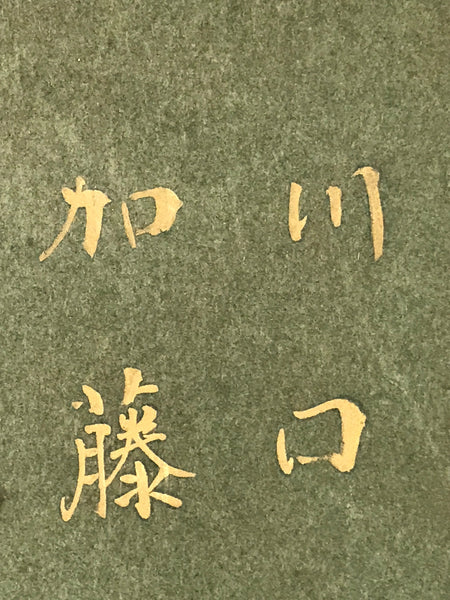 川口
加藤